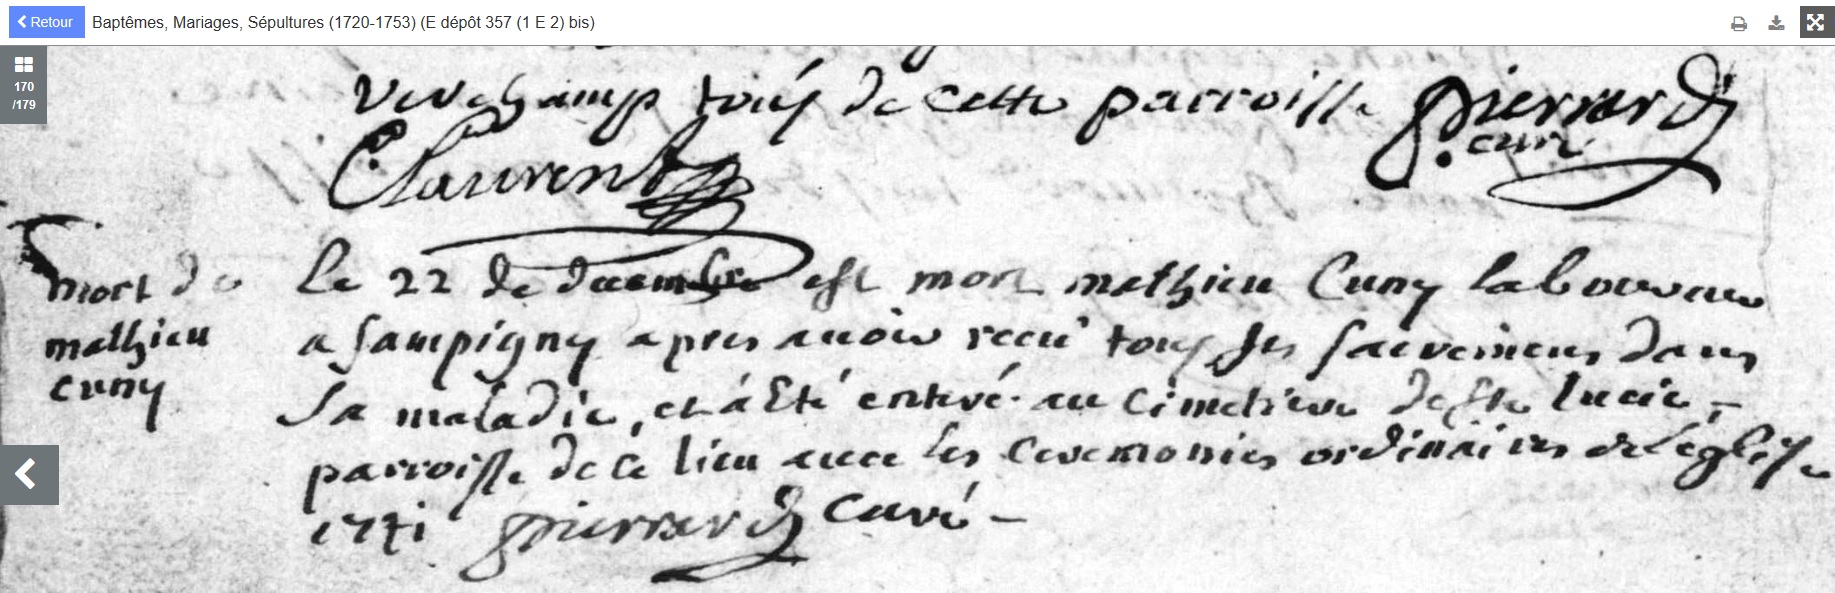 Retour Baptêmes, Mariages, Sépultures (1720-1753) (E dépôt 357 (1 E 2) bis)
170
/179
touś de cette parroisse pierrard
curé
C Laurent
mort de
mathieu
cuny
Le 22 de decembre est mort mathieu Cuny laboureur
a sampigny apres avoir recu tous ses sacremens dans
sa maladie, et à Eté enteré au Cimetiere de ste lucie,
parroisse de ce lieu avec les ceremonies ordinaires de l'église
1741 pierrard Curé